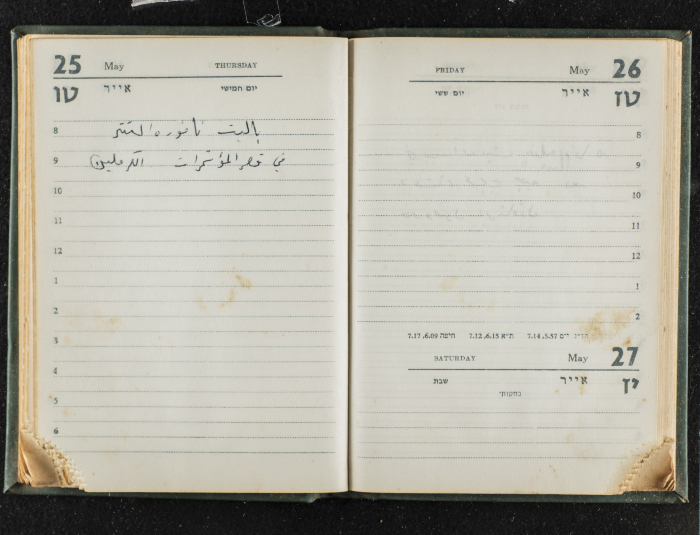 25 May THURSDAY
טו אייר יום חמישי
8
9 في قصر المؤتمرات الكرملين
10
11
12
1
2
3
4
5
6
FRIDAY May 26
יום ששי אייר טז
8
9
10
11
12
1
2
7.14 ,5.57 ת"א 7.12 ,6.15 חיפה 7.17 ,6.09
SATURDAY May 27
שבת אייר יז
בחקותי